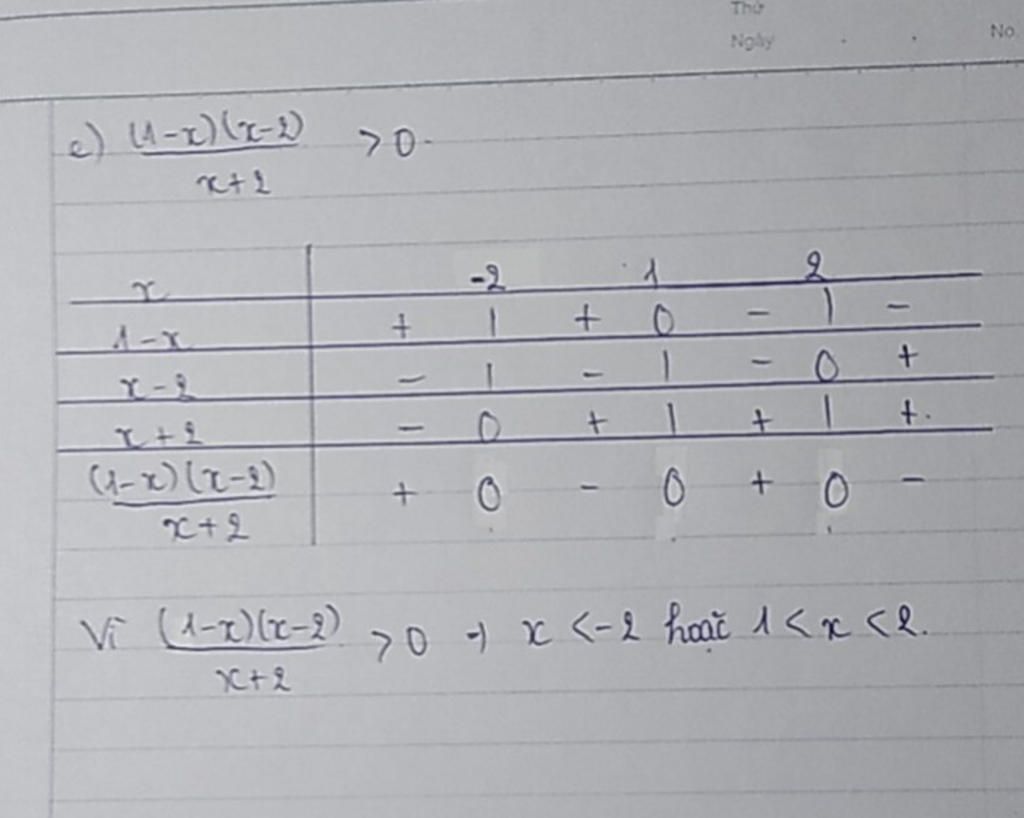 Thứ
Ngày . . No.
c) (1-x)(x-2)/x+2 >0.
x -2 1 2
1-x + | + 0 - | -
x-2 - | - | - 0 +
x+2 - 0 + | + | +.
(1-x)(x-2)/x+2 + 0 - 0 + 0 -
Vì (1-x)(x-2)/x+2 >0 → x <-2 hoặc 1 < x < 2.